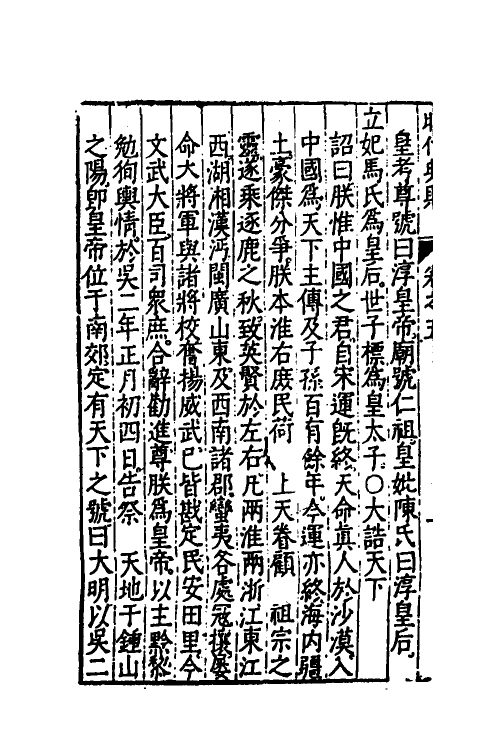 皇考尊號曰淳皇帝廟號仁祖皇妣陳氏曰淳皇后
立妃馬氏為皇后世子標為皇太子○大誥天下
詔曰朕惟中國之君自宋運既終天命眞人於沙漠入
中國為天下主傳及子孫百有餘年今運亦終海内疆
土豪傑分爭朕本淮右庶民荷　上天眷顧　祖宗之
靈遂乘逐鹿之秋致英賢於左右凡兩淮兩浙江東江
西湖湘漢沔閩廣山東及西南諸郡蠻夷各處冦攘屡
命大將軍與諸將校奮揚威武已皆戡定民安田里今
文武大臣百司衆庶合辭勸進尊朕為皇帝以主黔黎
勉徇輿情於吳二年正月初四日告祭　天地于鍾山
之陽卽皇帝位于南郊定有天下之號曰大明以吳二